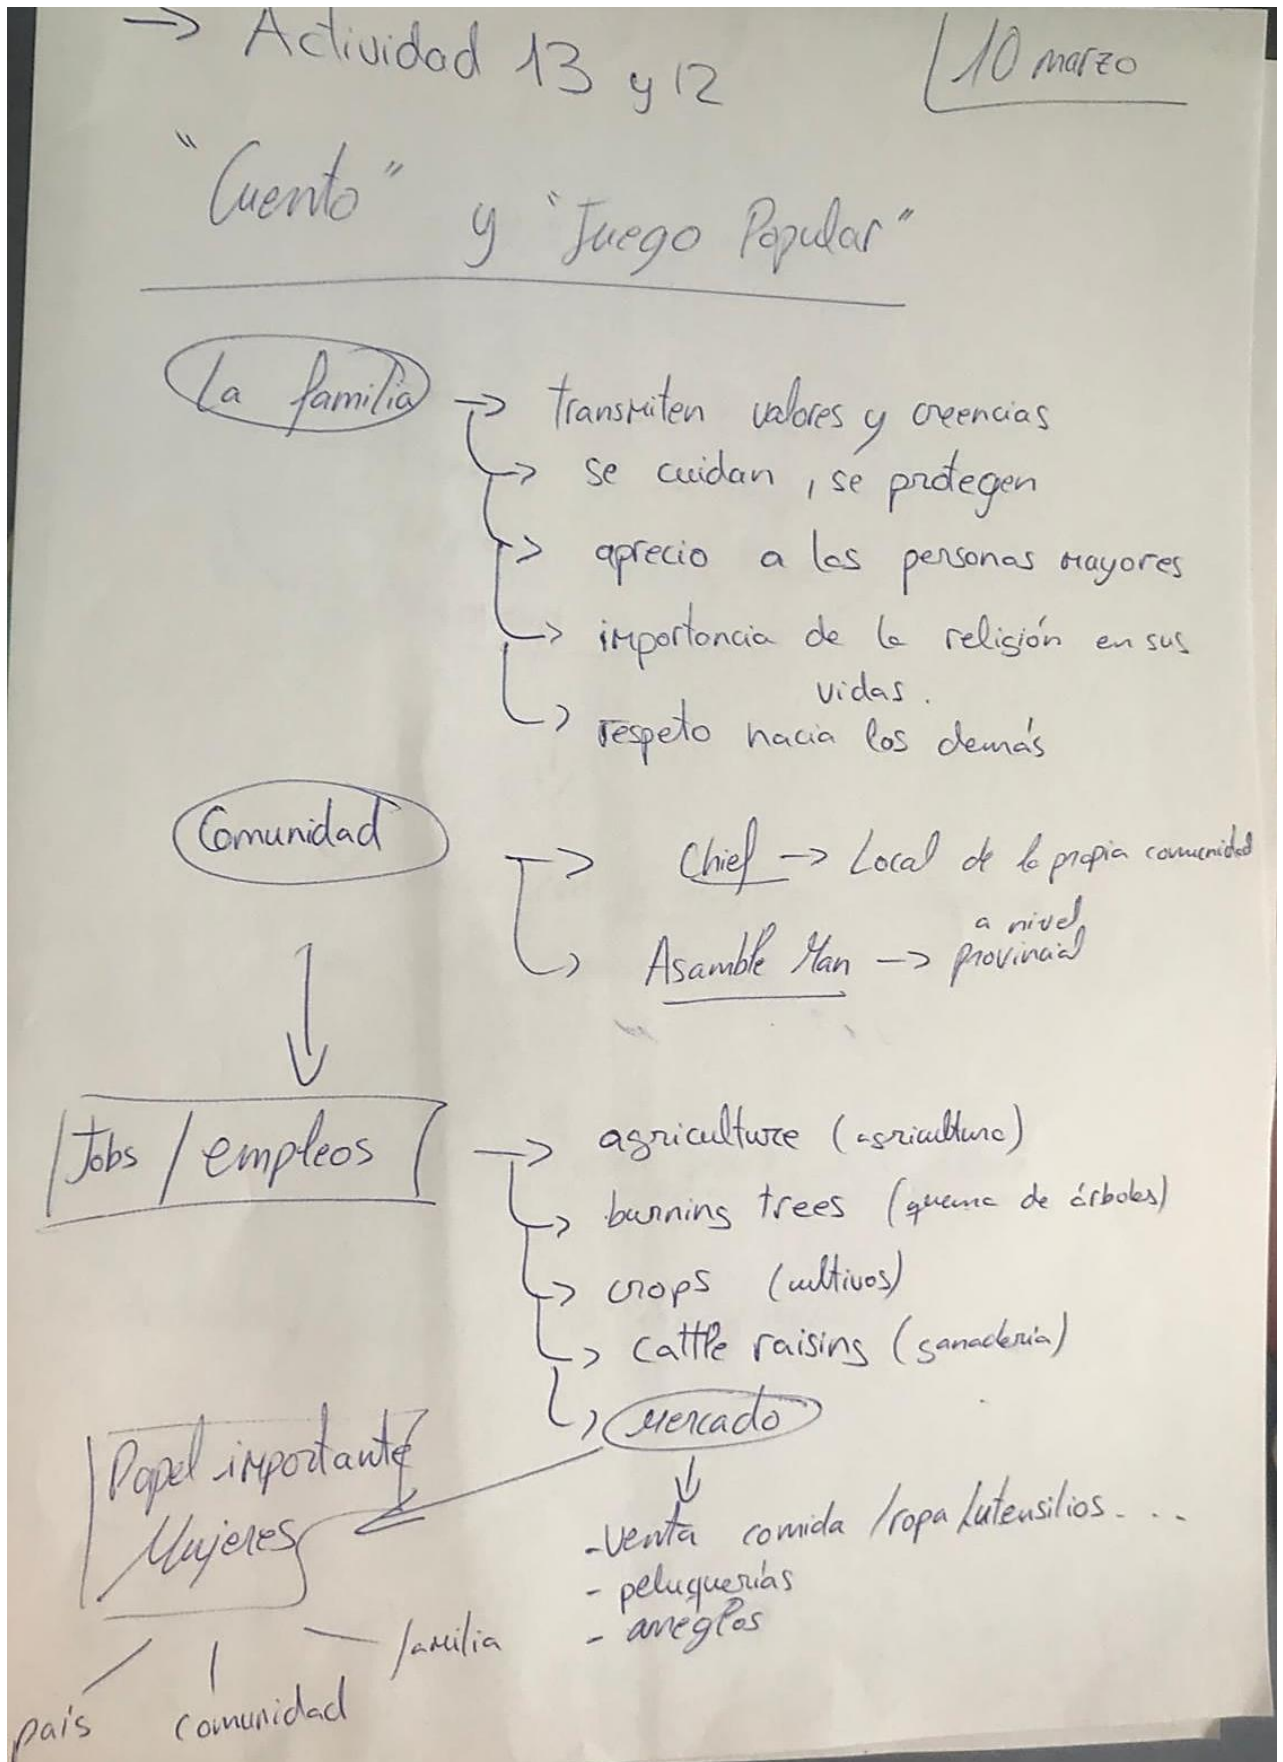 → Actividad 13 y 12
10 marzo
"Cuento" y "Juego Popular"
La familia → transmiten valores y creencias
→ se cuidan, se protegen
→ aprecio a las personas mayores
→ importancia de la religión en sus
vidas.
→ respeto hacia los demás
Comunidad → Chief → Local de la propia comunidad
→ Asamble Man → a nivel
provincial
Jobs / empleos → agriculture (agricultura)
→ burning trees (quema de árboles)
→ crops (cultivos)
→ cattle raising (ganadería)
→ Mercado
Papel importante
Mujeres
- venta comida / ropa / utensilios....
- peluquerías
- arreglos
familia
comunidad
país